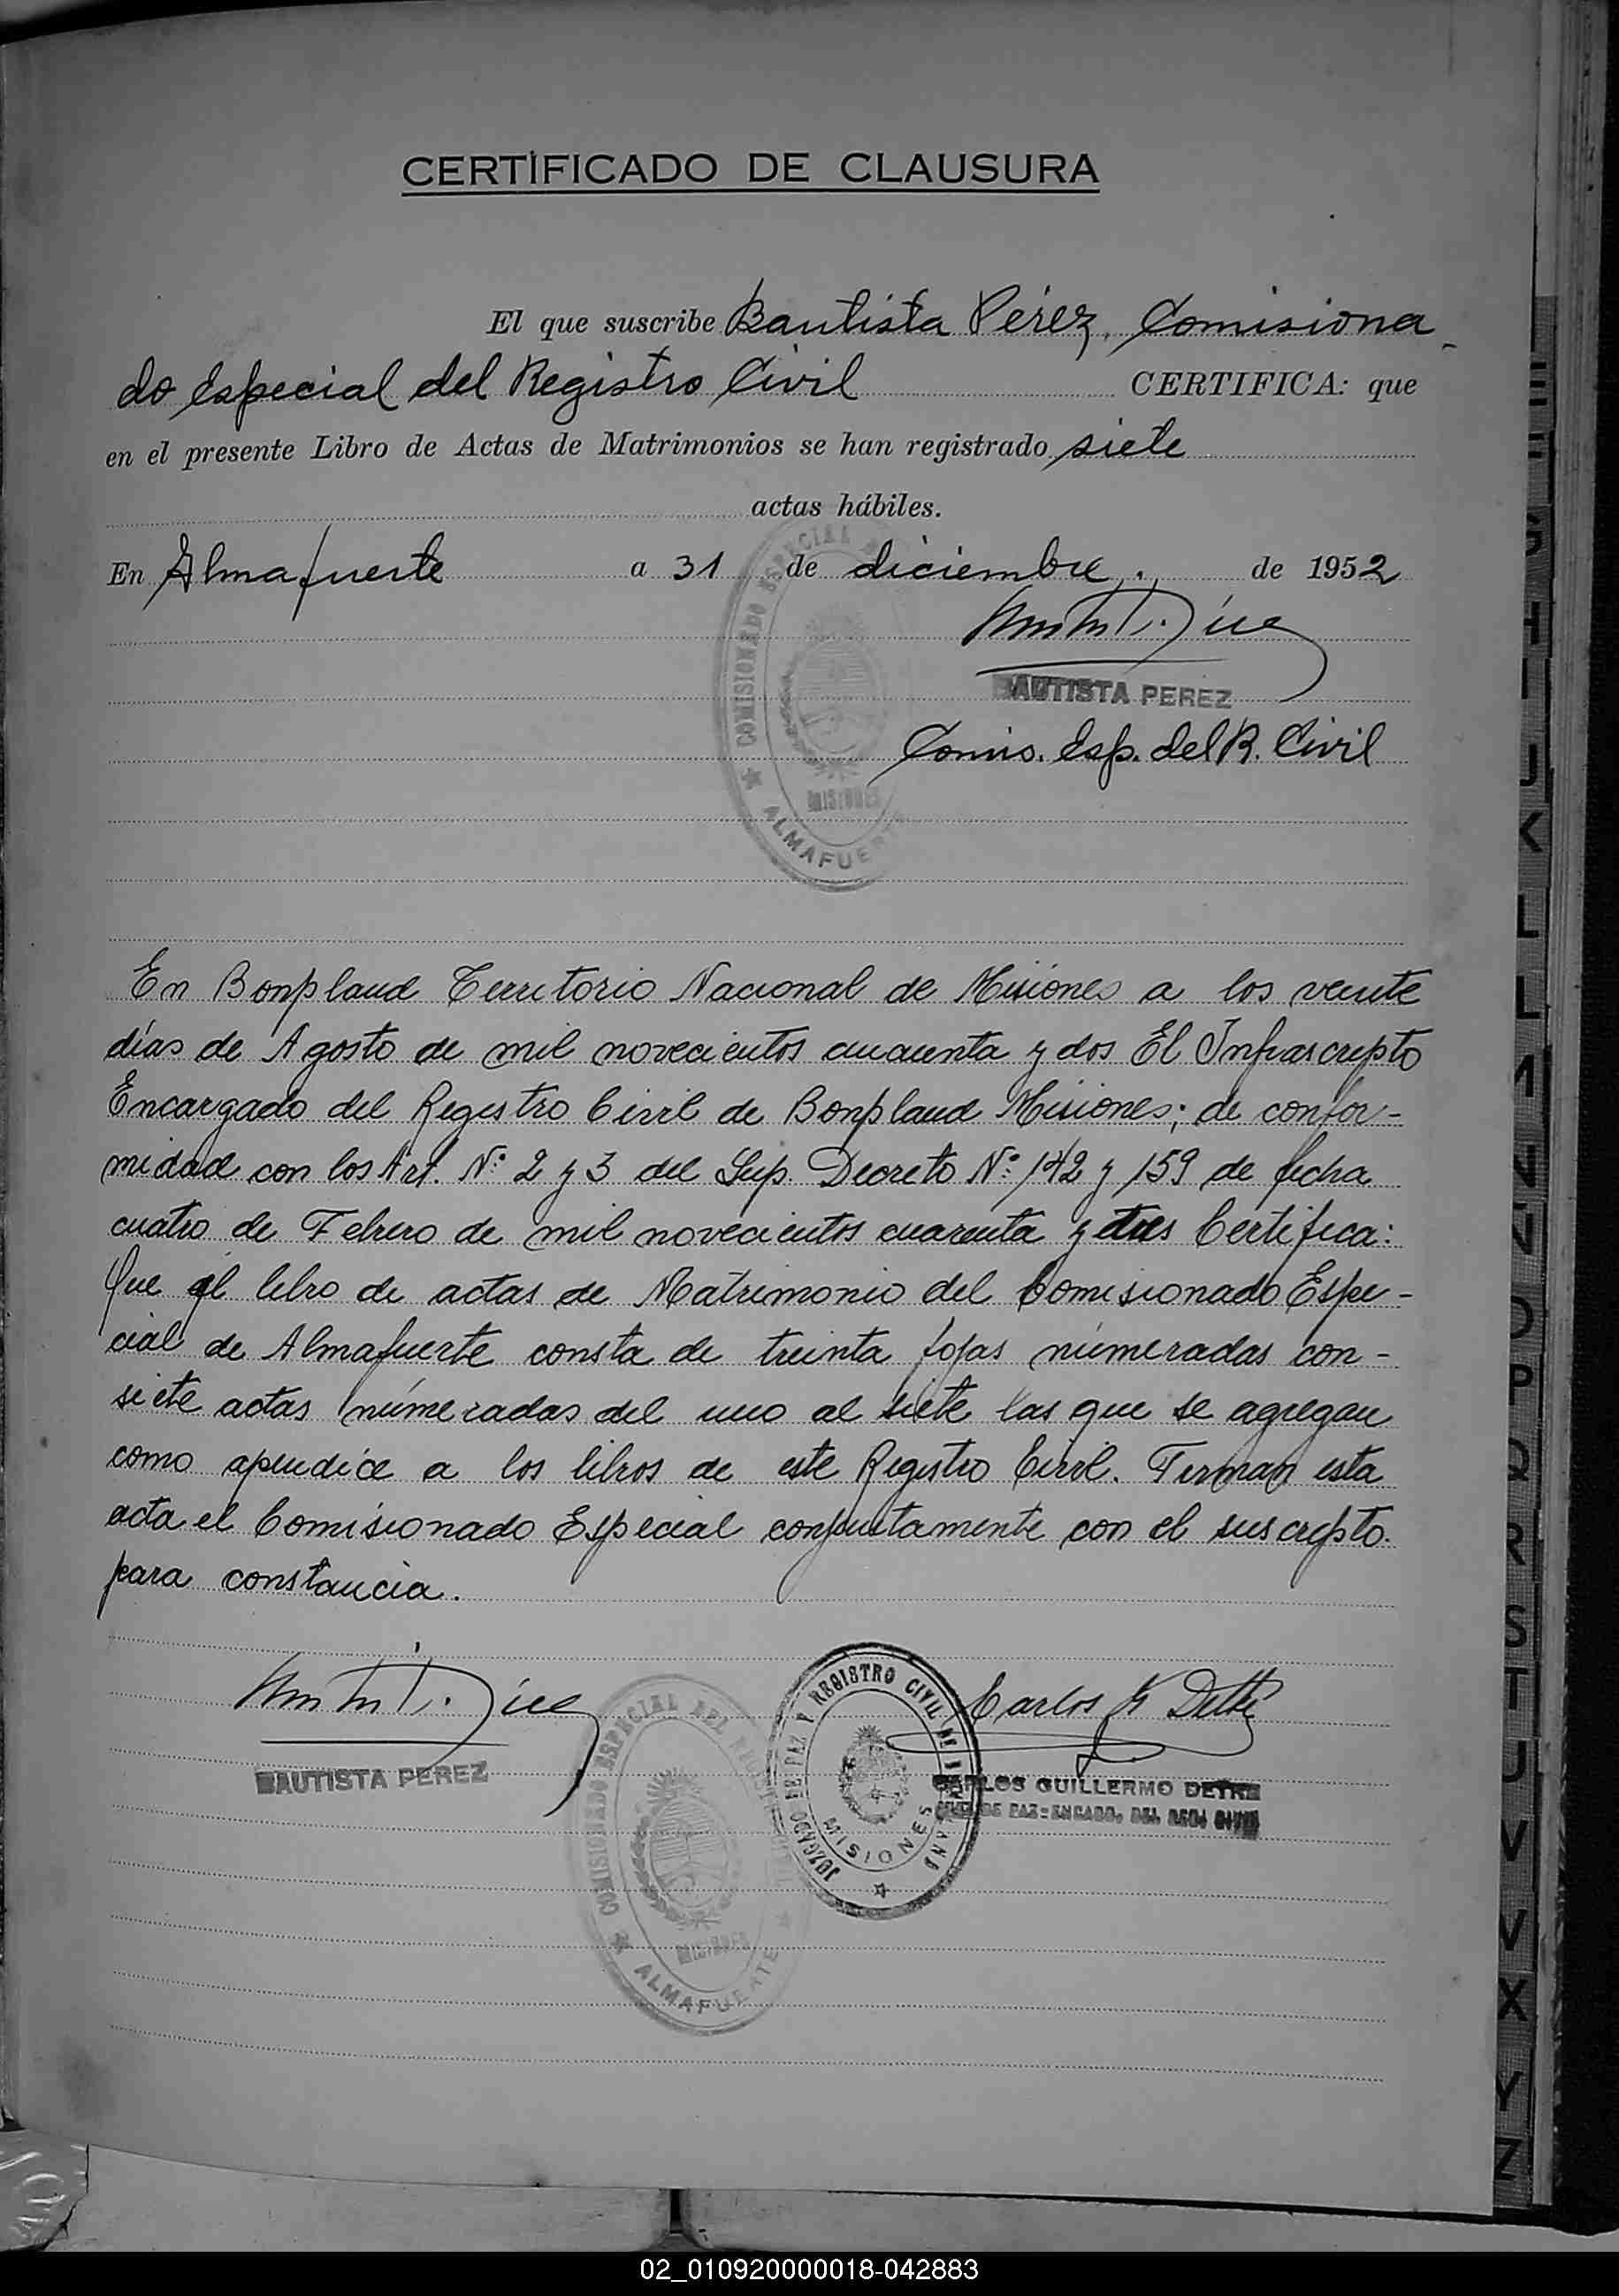 CERTIFICADO DE CLAUSURA
El que suscribe Bautista Pérez, Comisiona-
do Especial del Registro Civil CERTIFICA: que
en el presente Libro de Actas de Matrimonios se han registrado siete
actas hábiles.
En Almafuerte a 31 de diciembre de 1952
BAUTISTA PEREZ
Comis. Esp. del R. Civil
COMISIONADO ESPECIAL
MISIONES
ALMAFUERTE
En Bonpland Territorio Nacional de Misiones a los veinte
días de Agosto de mil novecientos cincuenta y dos El Infrascripto
Encargado del Registro Civil de Bonpland Misiones; de confor-
midad con los Art. Nº 2 y 3 del Sup. Decreto Nº 142 y 159 de fecha
cuatro de Febrero de mil novecientos cuarenta y tres Certifica:
Que el libro de actas de Matrimonio del Comisionado Espe-
cial de Almafuerte consta de treinta fojas númeradas con-
siete actas númeradas del uno al siete las que se agregan
como apendice a los libros de este Registro Civil. Firman esta
acta el Comisionado Especial conjuntamente con el suscripto.
para constancia.
BAUTISTA PEREZ
COMISIONADO ESPECIAL DEL
MISIONES
ALMAFUERTE
JUZGADO DE PAZ Y REGISTRO CIVIL DE
MISIONES
Carlos G Detke
CARLOS GUILLERMO DETKE
JUEZ DE PAZ - ENCARG. DEL REG. CIVIL
J
K
L
P
Q
R
S
T
U
V
X
Y
Z
02_010920000018-042883